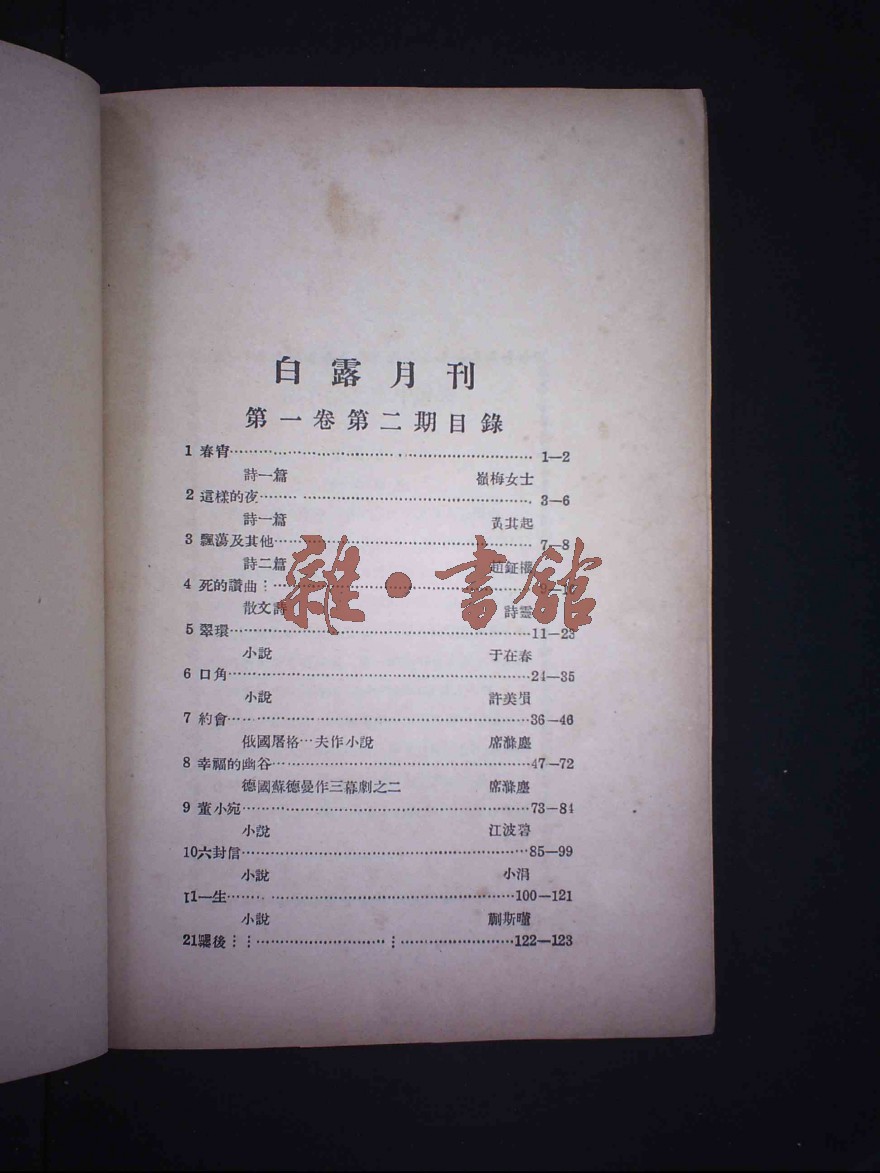 白露月刊
第一卷第二期目錄
1 春宵 1—2
詩一篇 嶺梅女士
2 這樣的夜 3—6
詩一篇 黃其起
3 飄蕩及其他 7—8
詩二篇
4 死的讚曲
散文詩 詩靈
雜·書館
5 翠環 11—23
小說 于在春
6 口角 24—35
小說 許美塤
7 約會 36—46
俄國屠格…夫作小說 席滌塵
8 幸福的幽谷 47—72
德國蘇德曼作三幕劇之二 席滌塵
9 董小宛 73—84
小說 江波碧
10六封信 85—99
小說 小涓
11一生 100—121
小說 蒯斯曛
21罷後 122—123